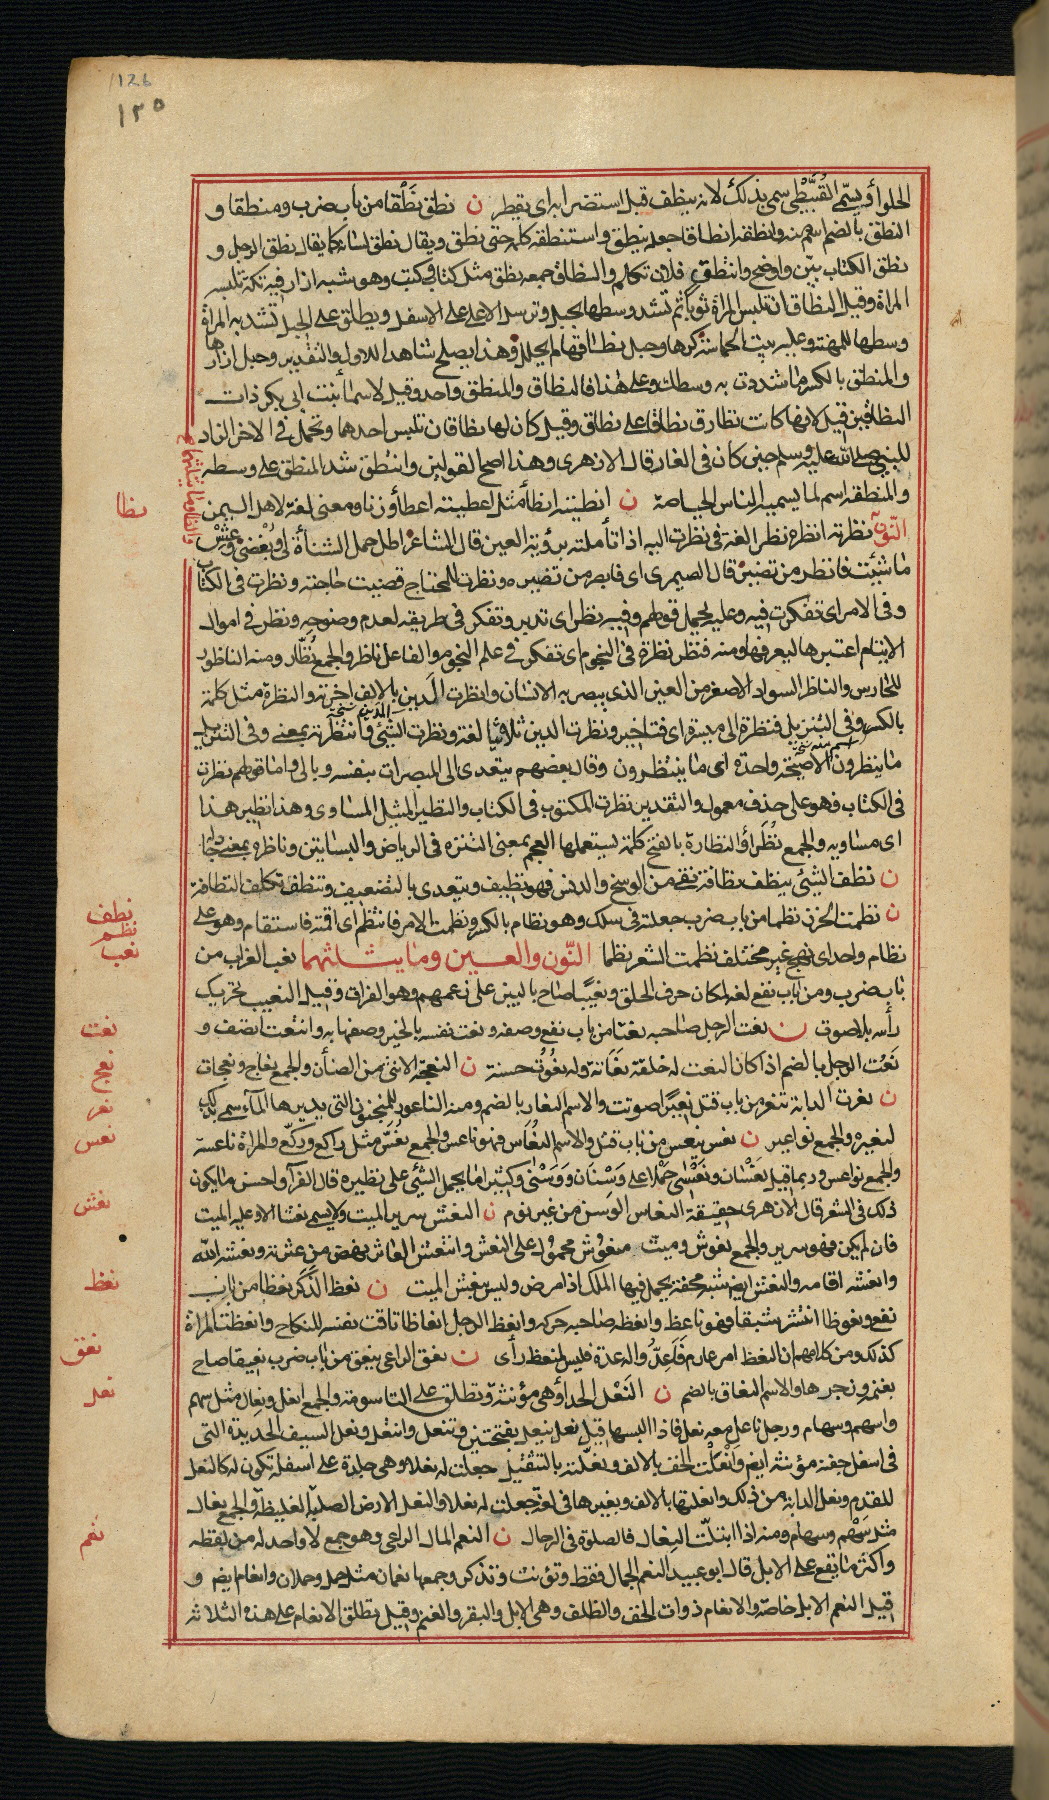 126
١٢٥
الحلوا ويسمّى القُبَّيْطى سمى بذلك لانه ينطف قبل استضرابه اى يقطر ن نطق نُطْقا من باب ضرب ومنطقا و
النطق بالضم اسم منه وانطقه انطاقا جعله ينطق واستنطقه كلمه حتى نطق ويقال نطق لسانه كما يقال نطق الرجل و
نطق الكتاب بيّن واوضح وانتطق فلان تكلم والنطاق جمعه نطق مثل كتاب وكتب وهو شبه ازار فيه تكة تلبسه
المراة وقيل النطاق ان تلبس المراة ثوبا ثم تشد وسطها بحبل وترسل الاعلى على الاسفل ويطلق على الحبل تشد به المراة
وسطها للمهنة وعليه بيت الحماسة كرها وحبل نطاقها لم يحلل وهذا يصلح شاهدا للاول والتقدير وحبل ازارها
والمنطق بالكسر ما شددت به وسطك وعلى هذا فالنطاق والمنطق واحد وقيل لاسما بنت ابى بكر ذات
النطاقين قيل لانها كانت تطارق نطاقا على نطاق وقيل كان لها نطاقان تلبس احدهما وتحمل فى الاخر الزاد
للنبى صلى الله عليه وسلم حين كان فى الغار قال الازهرى وهذا اصح القولين وانتطق شد المنطق على وسطه
والمنطقة اسم لما يسميه الناس الحياصة ن انطيته انطأ مثل اعطيته اعطأ وزنا ومعنى لغة لاهل اليمن
النّون نظرته انظره نظرا لغة فى نظرت اليه اذا تأملته برؤية العين قال الشاعر اطل حمل الشنأة لى وبُغْضى وعِشْ
ما شئت فانظر من تضير قال الصيمرى اى فابصر من تضيره ونظرت للمحتاج قضيت حاجته ونظرت فى الكتاب
وفى الامر اى تفكرت فيه وعليه يحمل قولهم وفيه نظر اى تدبر وتفكر فى طريقه لعدم وضوحه ونظر فى اموال
الايتام اعتبرها ليعرفها ومنه فنظر نظرة فى النجوم اى تفكر فى علم النجوم والفاعل ناظر والجمع نُظّار ومنه الناظور
للحارس والناظر السواد الاصغر من العين الذى يبصر به الانسان وانظرت الَدين بالالف اخرته والنظرة مثل كلمة
بالكسر وفى التنزيل فنظرة الى ميسرة اى فتاخير ونظرت الدين ثلاثيا لغة ونظرت الشئ وانتظرته بمعنى وفى التنزيل
ما ينظرون الا صيحة واحدة اى ما ينتظرون وقال بعضهم يتعدى الى المبصرات بنفسه وبالى واما قولهم نظرت
فى الكتاب فهو على حذف معمول والتقدير نظرت المكتوب فى الكتاب والنظير المثل المساوى وهذا نظير هذا
اى مساويه والجمع نُظَرَأ والنظارة بالفتح كلمة يستعملها العجم بمعنى التنزه فى الرياض والبساتين وناظره بمعنى
ن نظف الشئ ينظف نظافة نقى من الوسخ والدنس فهو نظيف ويتعدى بالتضعيف وتنظف تكلف النظافة
ن نظمت الخرز نظما من باب ضرب جعلته فى سلك وهو نظام بالكسر ونظمت الامر فانتظم اى اقمته فاستقام وهو على
نظام واحد اى نهج غير مختلف نظمت الشعر نظما النّون والعين وما يثلثهما نعب الغراب من
باب ضرب ومن باب نفع لغة لمكان حرف الحلق ونعيبا صاح بالبين على زعمهم وهو الفراق وقيل النعيب تحريك
رأسه بلا صوت ن نعت الرجل صاحبه نعتا من باب نفع وصفه ونعت نفسه بالخير وصفها به وانتعت اتصف و
نَعُت الرجل بالضم اذا كان النعت له خلقة نعاتة وله نعُوتٌ حسنة ن النعجة الانثى من الضأن والجمع نعاج ونعجات
ن نعرت الدابة تنعر من باب قتل نَعِيرًا صوتت والاسم النعار بالضم ومنه الناعور للمنجنون التى يديرها المآء سمى بذلك
لنعيره والجمع نواعير ن نعس ينعس من باب قتل والاسم النعُاس فهو ناعس والجمع نُعَّس مثل راكع وركّع والمراة ناعسة
والجمع نواعس وربما قيل نعَسْان ونَعْسٰى حَمْلا على وَسْنَان ووَسْنٰى وكثيرا ما يحمل الشئ على نظيره قال الفرآ واحسن ما يكون
ذلك فى الشعر قال الازهرى حقيقة النعاس الوسن من غير نوم ن النعش سرير الميت ولا يسمى نعشا الا وعليه الميت
فان لم يكن فهو سرير والجمع نعوش وميت منعُوش محمُول على النعش وانتعش العاثر نهض من عثرته ونعشه الله
وانعشه اقامه والنعش ايضا شبه محفة يحمل فيها الملك اذا مرض وليس بنعش الميت ن نعظ الذكر نعظا من باب
نفع ونعوظا انتشر شبقا فهو ناعظ وانعظه صاحبه حركه وانعظ الرجل انعاظا تاقت نفسه للنكاح وانعظت المراة
كذلك ومن كلامهم ان النعظ امر عارم فَاَعِدُّوا له عدة فليس لمنعظ رأى ن نعق الراعى ينعق من باب ضرب نعيقا صاح
بغنمه وزجرها والاسم النعاق بالضم ن النَعْل الحذأ وهى مؤنثة وتطلق على التاسومة والجمع انعل ونِعال مثل سهم
واسهم وسهام ورجل ناعل معه نعل فاذا البسها قيل نعل ينعل بفتحتين وتنعل وانتعل ونعل السيف الحديدة التى
فى اسفل جفنه مؤنثة ايضا وانعَلت الخف بالالف ونعَلته بالتثقيل جعلت له نعلا وهى جلدة على اسفله تكون له كالنعل
للقدم ونعل الدابة من ذلك وانعلتها بالالف وبغيرها فى لغة جعلت له نعلا والنعل الارض الصلبة الغليظة والجمع نعال
مثل سَهْم وسهام ومنه اذا ابتلت النِعال فالصلوة فى الرحال ن النعم المال الراعى وهو جمع لا واحد له من لفظه
واكثر ما يقع على الابل قال ابو عبيد النعم الجمال فقط وتؤنث وتذكر وجمعها نعمان مثل حمل وحملان وانعام ايضا و
قيل النعم الابل خاصة والانعام ذوات الخف والظلف وهى الابل والبقر والغنم وقيل تطلق الانعام على هذه الثلاثة
نطا
نظف
نظم
نعب
نعت
نعج
نعر
نعس
نعش
نعظ
نعق
نعل
نعم